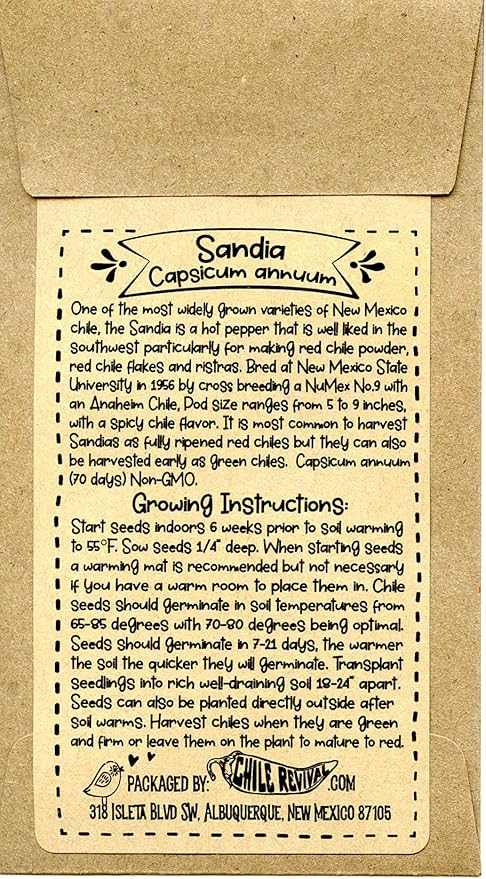 Sandia
Capsicum annuum
One of the most widely grown varieties of New Mexico
chile, the Sandia is a hot pepper that is well liked in the
southwest particularly for making red chile powder,
red chile flakes and ristras. Bred at New Mexico State
University in 1956 by cross breeding a NuMex No.9 with
an Anaheim Chile, Pod size ranges from 5 to 9 inches,
with a spicy chile flavor. It is most common to harvest
Sandias as fully ripened red chiles but they can also
be harvested early as green chiles. Capsicum annuum
(70 days) Non-GMO.
Growing Instructions:
Start seeds indoors 6 weeks prior to soil warming
to 55°F. Sow seeds 1/4" deep. When starting seeds
a warming mat is recommended but not necessary
if you have a warm room to place them in. Chile
seeds should germinate in soil temperatures from
65-85 degrees with 70-80 degrees being optimal.
Seeds should germinate in 7-21 days, the warmer
the soil the quicker they will germinate. Transplant
seedlings into rich well-draining soil 18-24" apart.
Seeds can also be planted directly outside after
soil warms. Harvest chiles when they are green
and firm or leave them on the plant to mature to red.
PACKAGED BY: CHILE REVIVAL .COM
318 ISLETA BLVD SW, ALBUQUERQUE, NEW MEXICO 87105